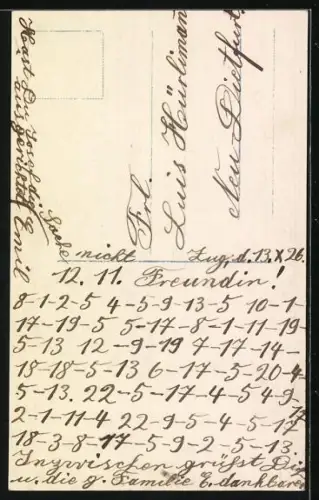 Frl.
Luis Hürlimann
Neu Dietfurt
Zug, d. 13.X 26.
12. 11. Freundin!
8-1-2-5 4-5-9-13-5 10-1-
17-19-5 5-17-8-1-11-19-
5-13 12-9-19 7-17-14-
18-18-5-13 6-17-5-20-4-
5-13. 22-5-17-4-5 4-9-
2-1-11-4 22-9-5-4-5-17-
18-3-8-17-5-9-2-5-13.
Inzwischen grüsst Dich
u. die g. Familie E. dankbaren
Hast Du Josef die
Sache nicht
ausgerichtet Emil